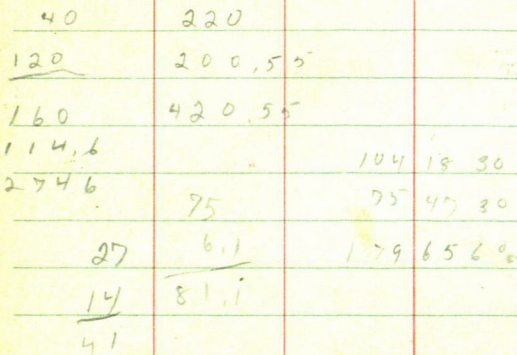 40 220
120 200.55
160 420.55
114.6 104 18 30
2746 75 47 30
75
27 6.1 179 65 60
14 81.1
41